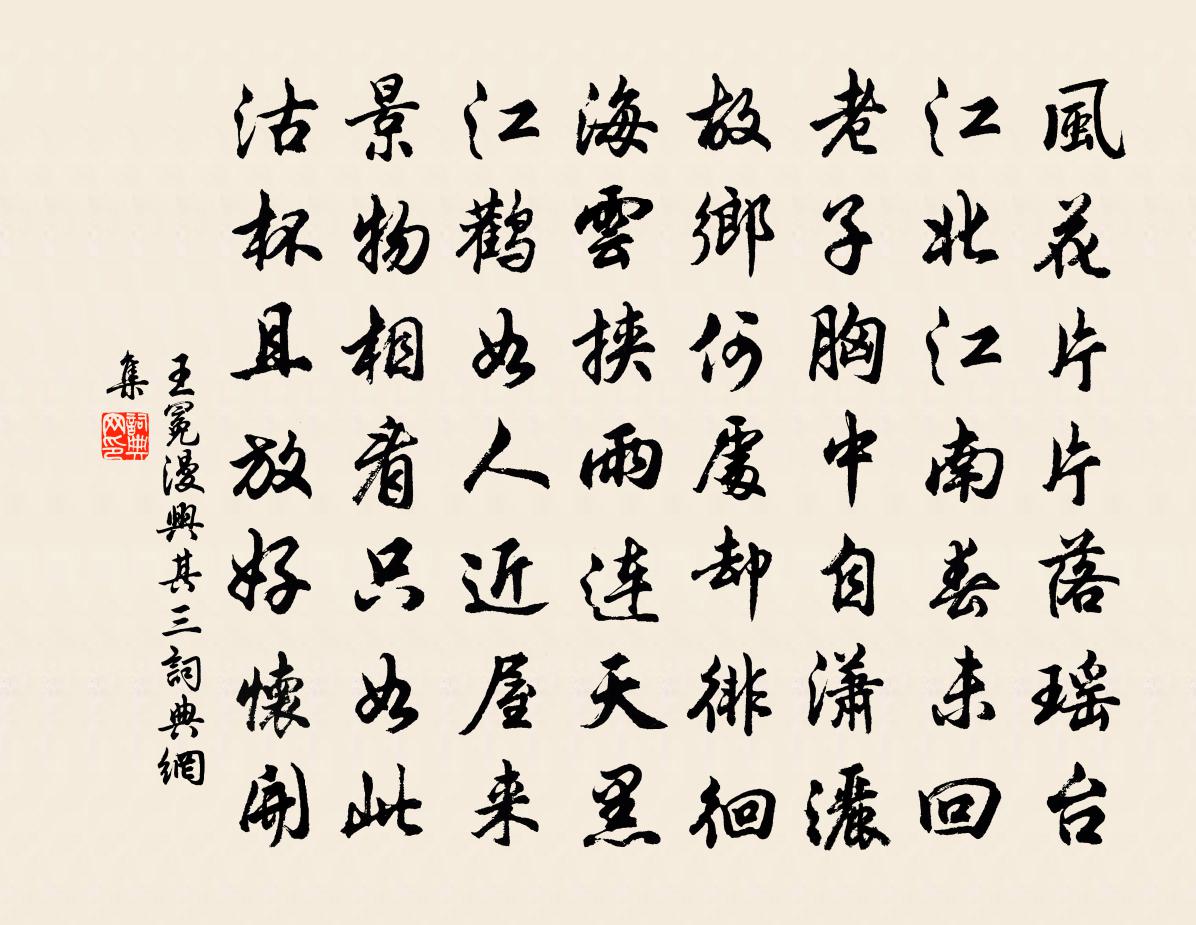 風花片片落瑶台
江北江南春未回
老子胸中自潇灑
故鄉何處却徘徊
海雲挾雨連天黑
江鸛如人近屋来
景物相看只如此
沽杯且放好懷開
王冕漫興其三詞典網
集
詞典网印